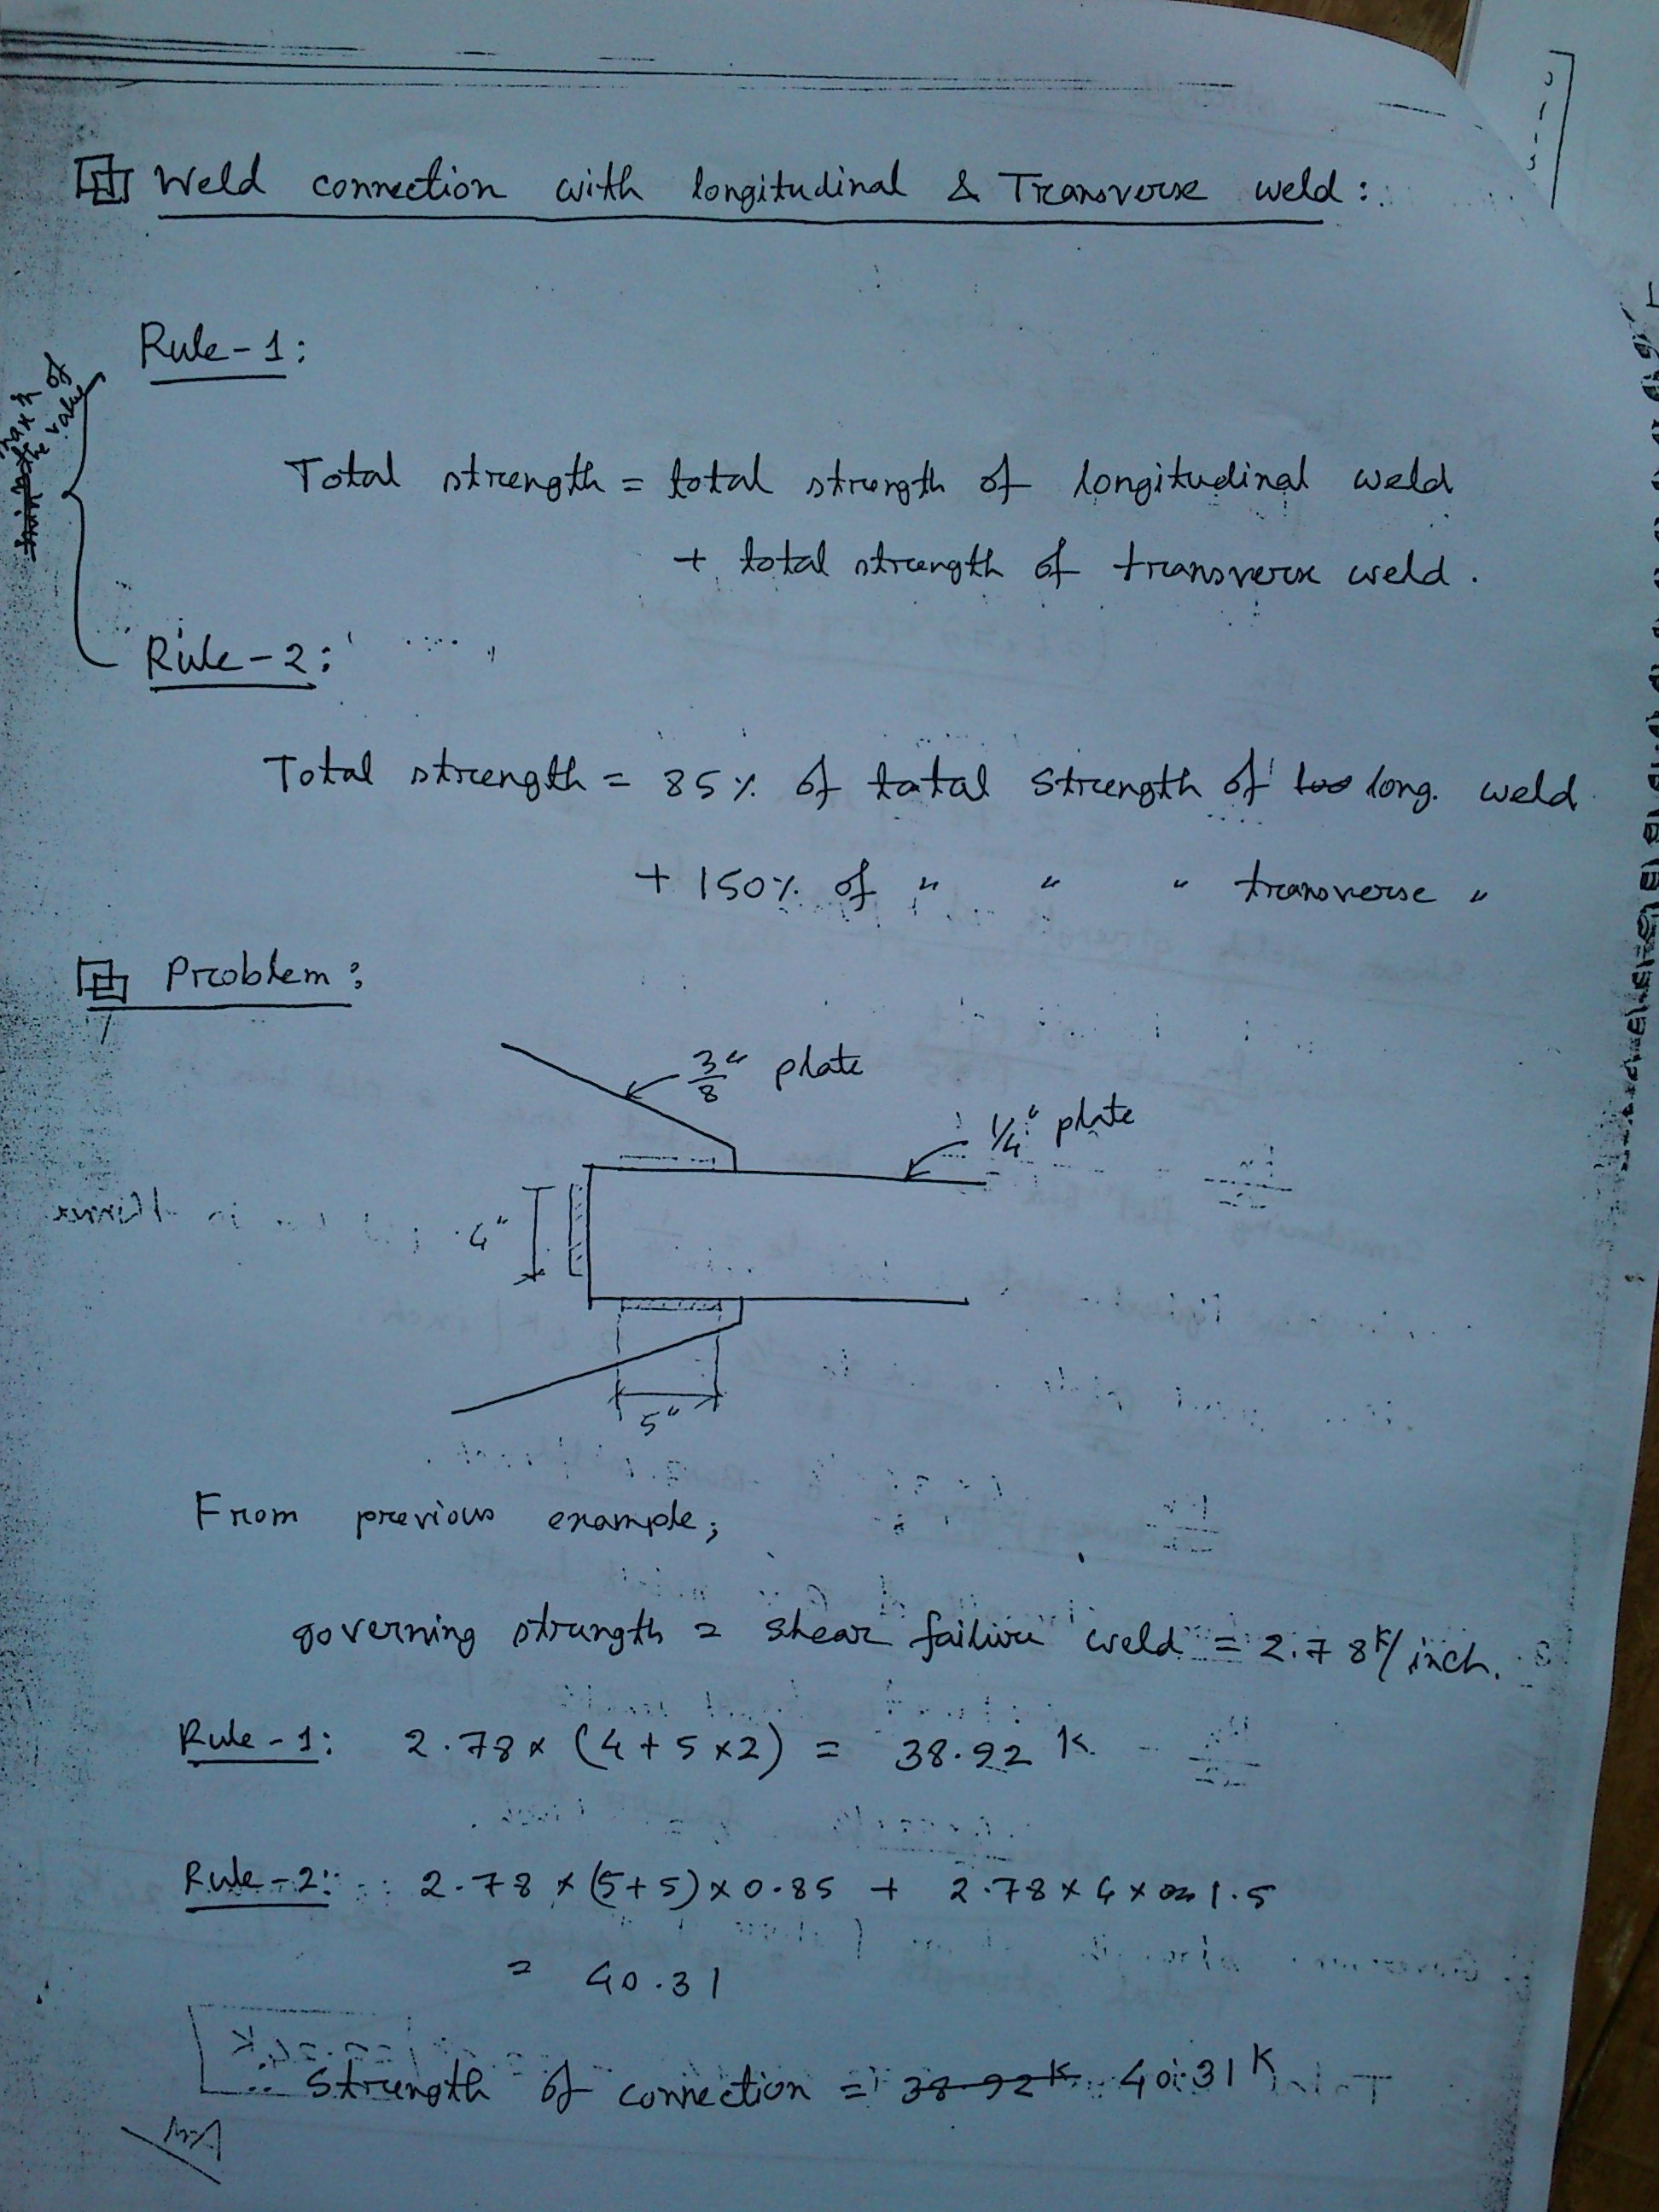 Weld connection with longitudinal & Transverse weld:
Rule-1:
max^m of
2 value
Total strength = total strength of longitudinal weld
+ total strength of transverse weld.
Rule-2:
Total strength = 85% of total strength of long. weld
+ 150% of " " " transverse "
Problem:
3/8" plate
1/4" plate
4"
5"
From previous example;
governing strength = shear failure weld = 2.78 K/inch.
Rule-1: 2.78 x (4+5x2) = 38.92 K
Rule-2: 2.78 x (5+5) x 0.85 + 2.78 x 4 x 1.5
= 40.31
∴ Strength of connection = 38.92 K 40.31 K